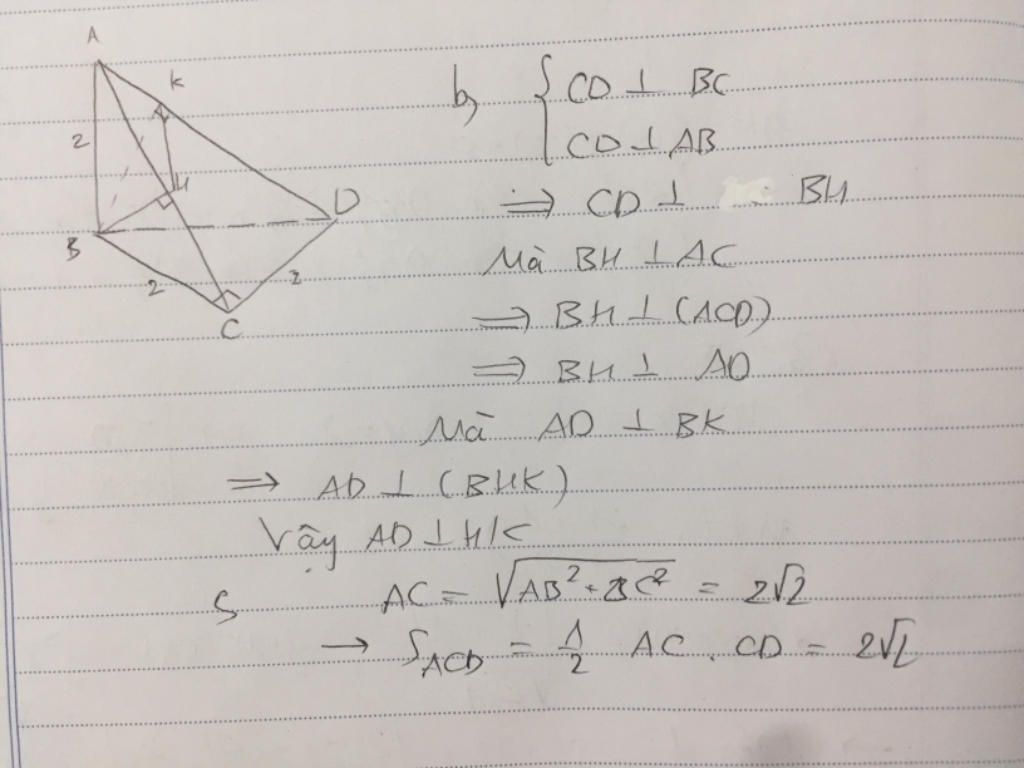 A
K
2
H
D
B
2
2
C
b, { CD ⊥ BC
CD ⊥ AB
⇒ CD ⊥ BH
Mà BH ⊥ AC
⇒ BH ⊥ (ACD)
⇒ BH ⊥ AD
Mà AD ⊥ BK
⇒ AD ⊥ (BHK)
Vậy AD ⊥ HK
AC = √(AB² + BC²) = 2√2
→ S_ACD = 1/2 AC . CD = 2√2